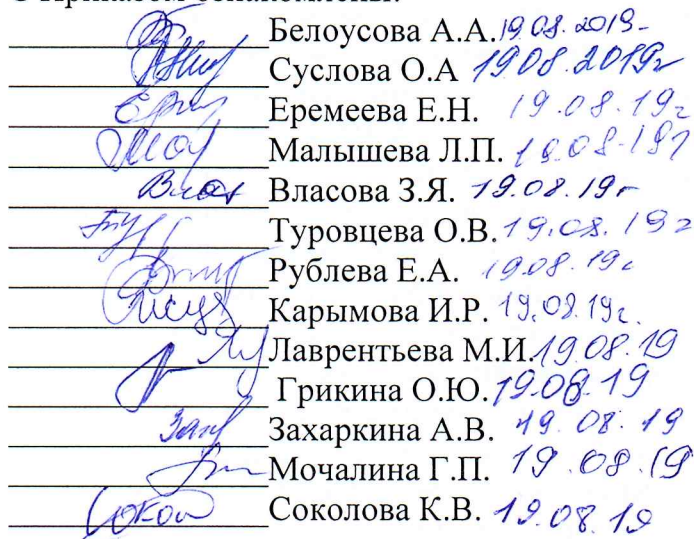 С приказом ознакомлены:
Белоусова А.А. 19.08.2019-
Суслова О.А 19.08.2019г
Еремеева Е.Н. 19.08.19г
Малышева Л.П. 19.08.19г
Власова З.Я. 19.08.19г
Туровцева О.В. 19.08.19г
Рублева Е.А. 19.08.19г
Карымова И.Р. 19.08.19г.
Лаврентьева М.И. 19.08.19
Грикина О.Ю. 19.08.19
Захаркина А.В. 19.08.19
Мочалина Г.П. 19.08.19
Соколова К.В. 19.08.19